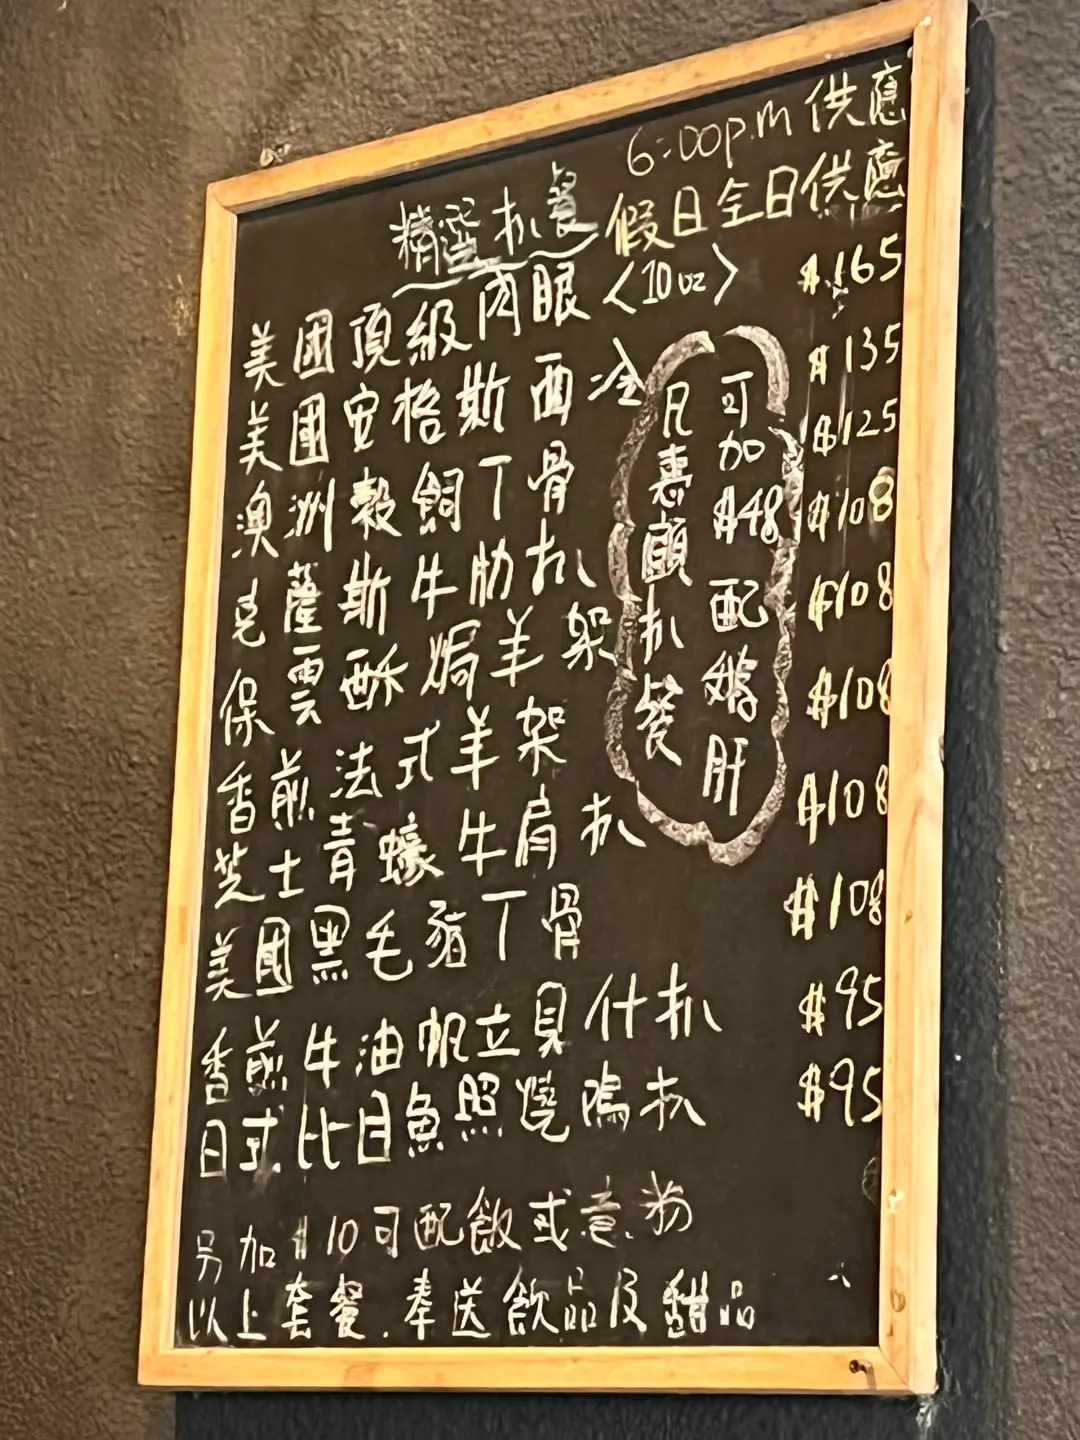 6:00p.m 供應
精選扒餐 假日全日供應
美國頂級肉眼〈10oz〉 $165
美國安格斯西冷 $135
澳洲穀飼丁骨 $125
克薩斯牛肋扒 $108
保雲酥焗羊架 $108
香煎法式羊架 $108
芝士青蠔牛肩扒 $108
美國黑毛豬丁骨 $108
香煎牛油帆立貝什扒 $95
日式比目魚照燒鳮扒 $95
凡惠顧扒餐
可加$48配鵝肝
另加$10可配飯或意粉
以上套餐.奉送飲品及甜品